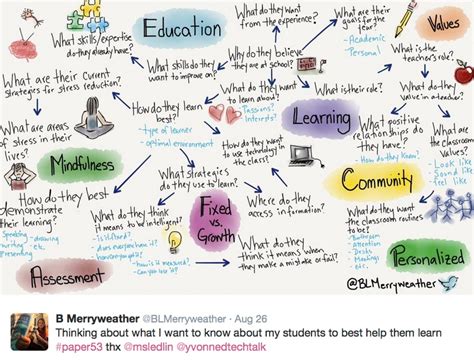 What do they want
from the experience?
What are their
goals for the
year?
- Academic
- Personal
Values
Education
What skills/expertise
do they already have?
What is the
teacher's role?
Why do they believe
they are at school?
What skills do they
want to improve on?
What are their current
strategies for stress reduction?
What do they want
to learn about?
Passions?
Interests?
What is their role?
What do they
value in a teacher?
How do they learn
best?
- type of learner
- optimal environment
Learning
What positive
relationships do
they have?
- How do they know?
What are
the classroom
values?
- Look like
- Sound like
- feel like
What are areas
of stress in their
lives?
Mindfulness
How do they want
to use technology in
the class?
What strategies
do they use to learn?
Community
How do they best
demonstrate
their learning?
Speaking
drawing
Writing
etc.
Presenting
What do they think
it means to be intelligent?
- is it fixed?
- Does everyone have it?
- How is it measured?
- Can you lose it?
Fixed
vs.
Growth
Where do they
access information?
What do they want
the classroom routines
to be?
- Bathroom
- Attention
- Desks
- Meetings
- etc.
What do they
think it means when
they make a mistake or fail?
Personalized
Assessment
@BLMerryweather
B Merryweather @BLMerryweather · Aug 26
Thinking about what I want to know about my students to best help them learn
#paper53 thx @msledlin @yvonnedtechtalk